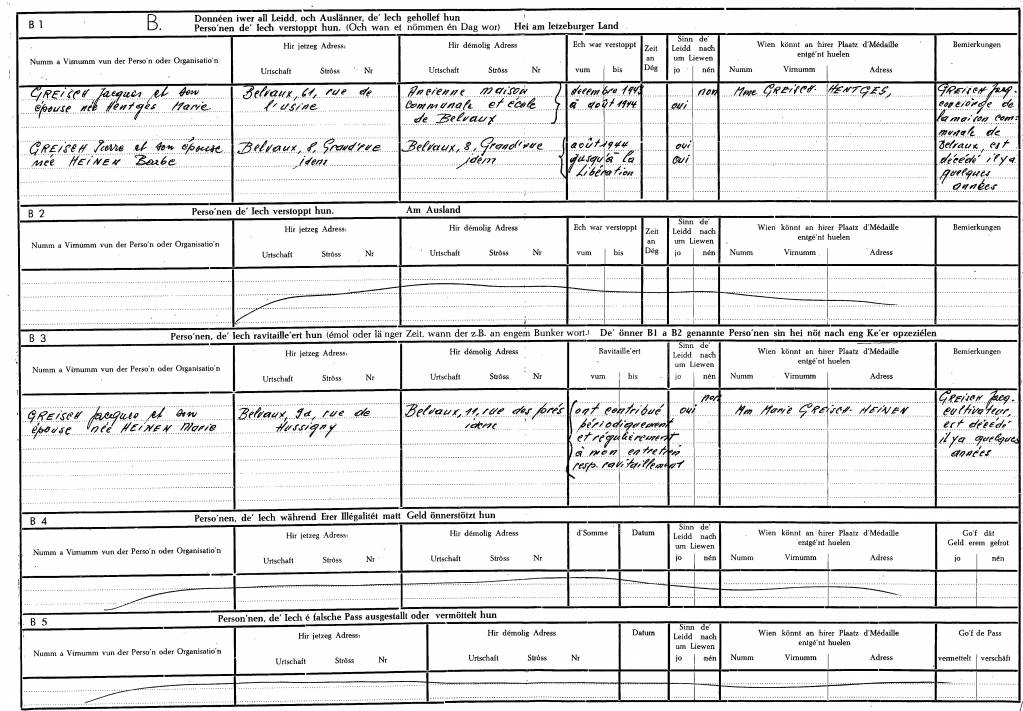 B 1 B. Donnéen iwer all Leidd, och Auslänner, de' Iech gehollef hun
Perso'nen de' Iech verstoppt hun. (Och wan et nömmen ên Dag wor) Hei am letzeburger Land
Numm a Virnumm vun der Perso'n oder Organisatio'n
Hir jetzeg Adress:
Urtschaft Ströss Nr
Hir démolig Adress
Urtschaft Ströss Nr
Ech war verstoppt
vum bis
Zeit an Dég
Sinn de' Leidd nach um Liewen
jo nén
Wien könnt an hirer Plaatz d'Médaille
entgé'nt huelen
Numm Virnumm Adress
Bemierkungen
GREISCH Jacques et son
épouse née Hentges Marie
Belvaux, 61, rue de
l'usine
Ancienne maison
communale et école
de Belvaux
décembre 1943
à août 1944
non
oui
Mme GREISCH-HENTGES,
GREISCH Jacq.
concierge de
la maison com-
munale de
Belvaux, est
décédé il y a
quelques
années
GREISCH Pierre et son épouse
née HEINEN Barbe
Belvaux, 8, Grand'rue
idem
Belvaux, 8, Grand'rue
idem
août 1944
jusqu'à la
Libération
oui
oui
B 2 Perso'nen de' Iech verstoppt hun. Am Ausland
Numm a Virnumm vun der Perso'n oder Organisatio'n
Hir jetzeg Adress:
Urtschaft Ströss Nr
Hir démolig Adress
Urtschaft Ströss Nr
Ech war verstoppt
vum bis
Zeit an Dég
Sinn de' Leidd nach um Liewen
jo nén
Wien könnt an hirer Plaatz d'Médaille
entgé'nt huelen
Numm Virnumm Adress
Bemierkungen
B 3 Perso'nen, de' Iech ravitaille'ert hun (émol oder länger Zeit, wann der z.B. an engem Bunker wort.) De' önner B1 a B2 genannte Perso'nen sin hei nöt nach eng Ke'er opzeziélen
Numm a Virnumm vun der Perso'n oder Organisatio'n
Hir jetzeg Adress:
Urtschaft Ströss Nr
Hir démolig Adress
Urtschaft Ströss Nr
Ravitaille'ert
vum bis
Sinn de' Leidd nach um Liewen
jo nén
Wien könnt an hirer Plaatz d'Médaille
entgé'nt huelen
Numm Virnumm Adress
Bemierkungen
GREISCH Jacques et son
épouse née HEINEN Marie
Belvaux, 9a, rue de
Hussigny
Belvaux, 11, rue des prés
idem
ont contribué
périodiquement
et régulièrement
à mon entretien
resp. ravitaillement
non
oui
Mm Marie GREISCH-HEINEN
GREISCH Jacq.
cultivateur,
est décédé
il y a quelques
années
B 4 Perso'nen, de' Iech während Erer Illégalitét matt Geld önnerstötzt hun
Numm a Virnumm vun der Perso'n oder Organisatio'n
Hir jetzeg Adress:
Urtschaft Ströss Nr
Hir démolig Adress
Urtschaft Ströss Nr
d'Somme
Datum
Sinn de' Leidd nach um Liewen
jo nén
Wien könnt an hirer Plaatz d'Médaille
entgé'nt huelen
Numm Virnumm Adress
Go'f dât
Geld erem gefrot
jo nén
B 5 Person'nen, de' Iech é falsche Pass ausgestallt oder vermöttelt hun
Numm a Virnumm vun der Perso'n oder Organisatio'n
Hir jetzeg Adress:
Urtschaft Ströss Nr
Hir démolig Adress:
Urtschaft Ströss Nr
Datum
Sinn de' Leidd nach um Liewen
jo nén
Wien könnt an hirer Plaatz d'Médaille
entgé'nt huelen
Numm Virnumm Adress
Go'f de Pass
vermettelt verschâft